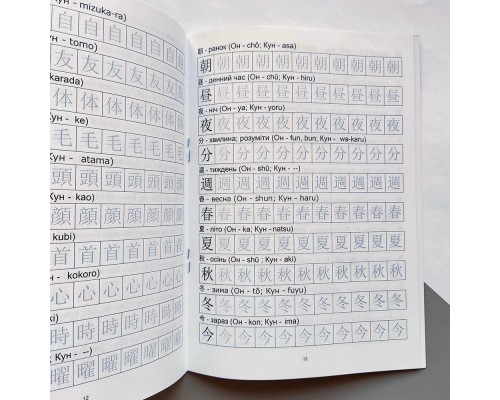 Кун - mizuka-ra)
自 自 自 自
Кун - tomo)
友 友 友 友
karada)
体 体 体 体
Кун - ke)
毛 毛 毛 毛
Кун - atama)
頭 頭 頭 頭
Кун - kao)
顔 顔 顔 顔
kubi)
首 首 首 首
- kokoro)
心 心 心 心
ki)
時 時 時 時
; Кун - --)
曜 曜 曜 曜
12
朝 - ранок (Он - chō; Кун - asa)
朝 朝 朝 朝 朝 朝 朝 朝 朝 朝
昼 - денний час (Он - chū; Кун - hiru)
昼 昼 昼 昼 昼 昼 昼 昼 昼 昼
夜 - ніч (Он - ya; Кун - yoru)
夜 夜 夜 夜 夜 夜 夜 夜 夜 夜
分 - хвилина; розуміти (Он - fun, bun; Кун - wa-karu)
分 分 分 分 分 分 分 分 分 分
週 - тиждень (Он - shū; Кун - --)
週 週 週 週 週 週 週 週 週 週
春 - весна (Он - shun; Кун - haru)
春 春 春 春 春 春 春 春 春 春
夏 - літо (Он - ka; Кун - natsu)
夏 夏 夏 夏 夏 夏 夏 夏 夏 夏
秋 - осінь (Он - shū ; Кун - aki)
秋 秋 秋 秋 秋 秋 秋 秋 秋 秋
冬 - зима (Он - tō; Кун - fuyu)
冬 冬 冬 冬 冬 冬 冬 冬 冬 冬
今 - зараз (Он - kon; Кун - ima)
今 今 今 今 今 今 今 今 今 今
13